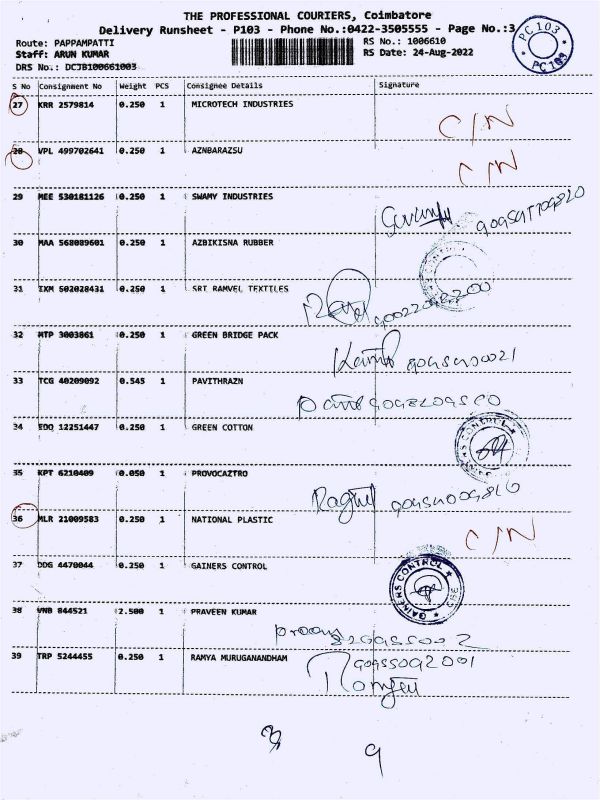 THE PROFESSIONAL COURIERS, Coimbatore
Delivery Runsheet - P103 - Phone No.:0422-3505555 - Page No.:3
Route: PAPPAMPATTI RS No.: 1006610
Staff: ARUN KUMAR RS Date: 24-Aug-2022
DRS No.: DCJB100661003
PC 103
PC 103
S No Consignment No Weight PCS Consignee Details Signature
27 KRR 2579814 0.250 1 MICROTECH INDUSTRIES C/N
28 VPL 499702641 0.250 1 AZNBARAZSU C/N
29 MEE 530181126 0.250 1 SWAMY INDUSTRIES
30 MAA 568089601 0.250 1 AZBIKISNA RUBBER
31 IXM 502028431 0.250 1 SRI RAMVEL TEXTILES
32 MTP 3003861 0.250 1 GREEN BRIDGE PACK
33 TCG 40209092 0.545 1 PAVITHRAZN
34 EOO 12251447 0.250 1 GREEN COTTON
35 KPT 6210409 0.050 1 PROVOCAZTRO
36 MLR 21009583 0.250 1 NATIONAL PLASTIC C/N
37 DDG 4470044 0.250 1 GAINERS CONTROL
GAINERS CONTROL CBE
38 VNB 844521 2.500 1 PRAVEEN KUMAR
39 TRP 5244455 0.250 1 RAMYA MURUGANANDHAM
9